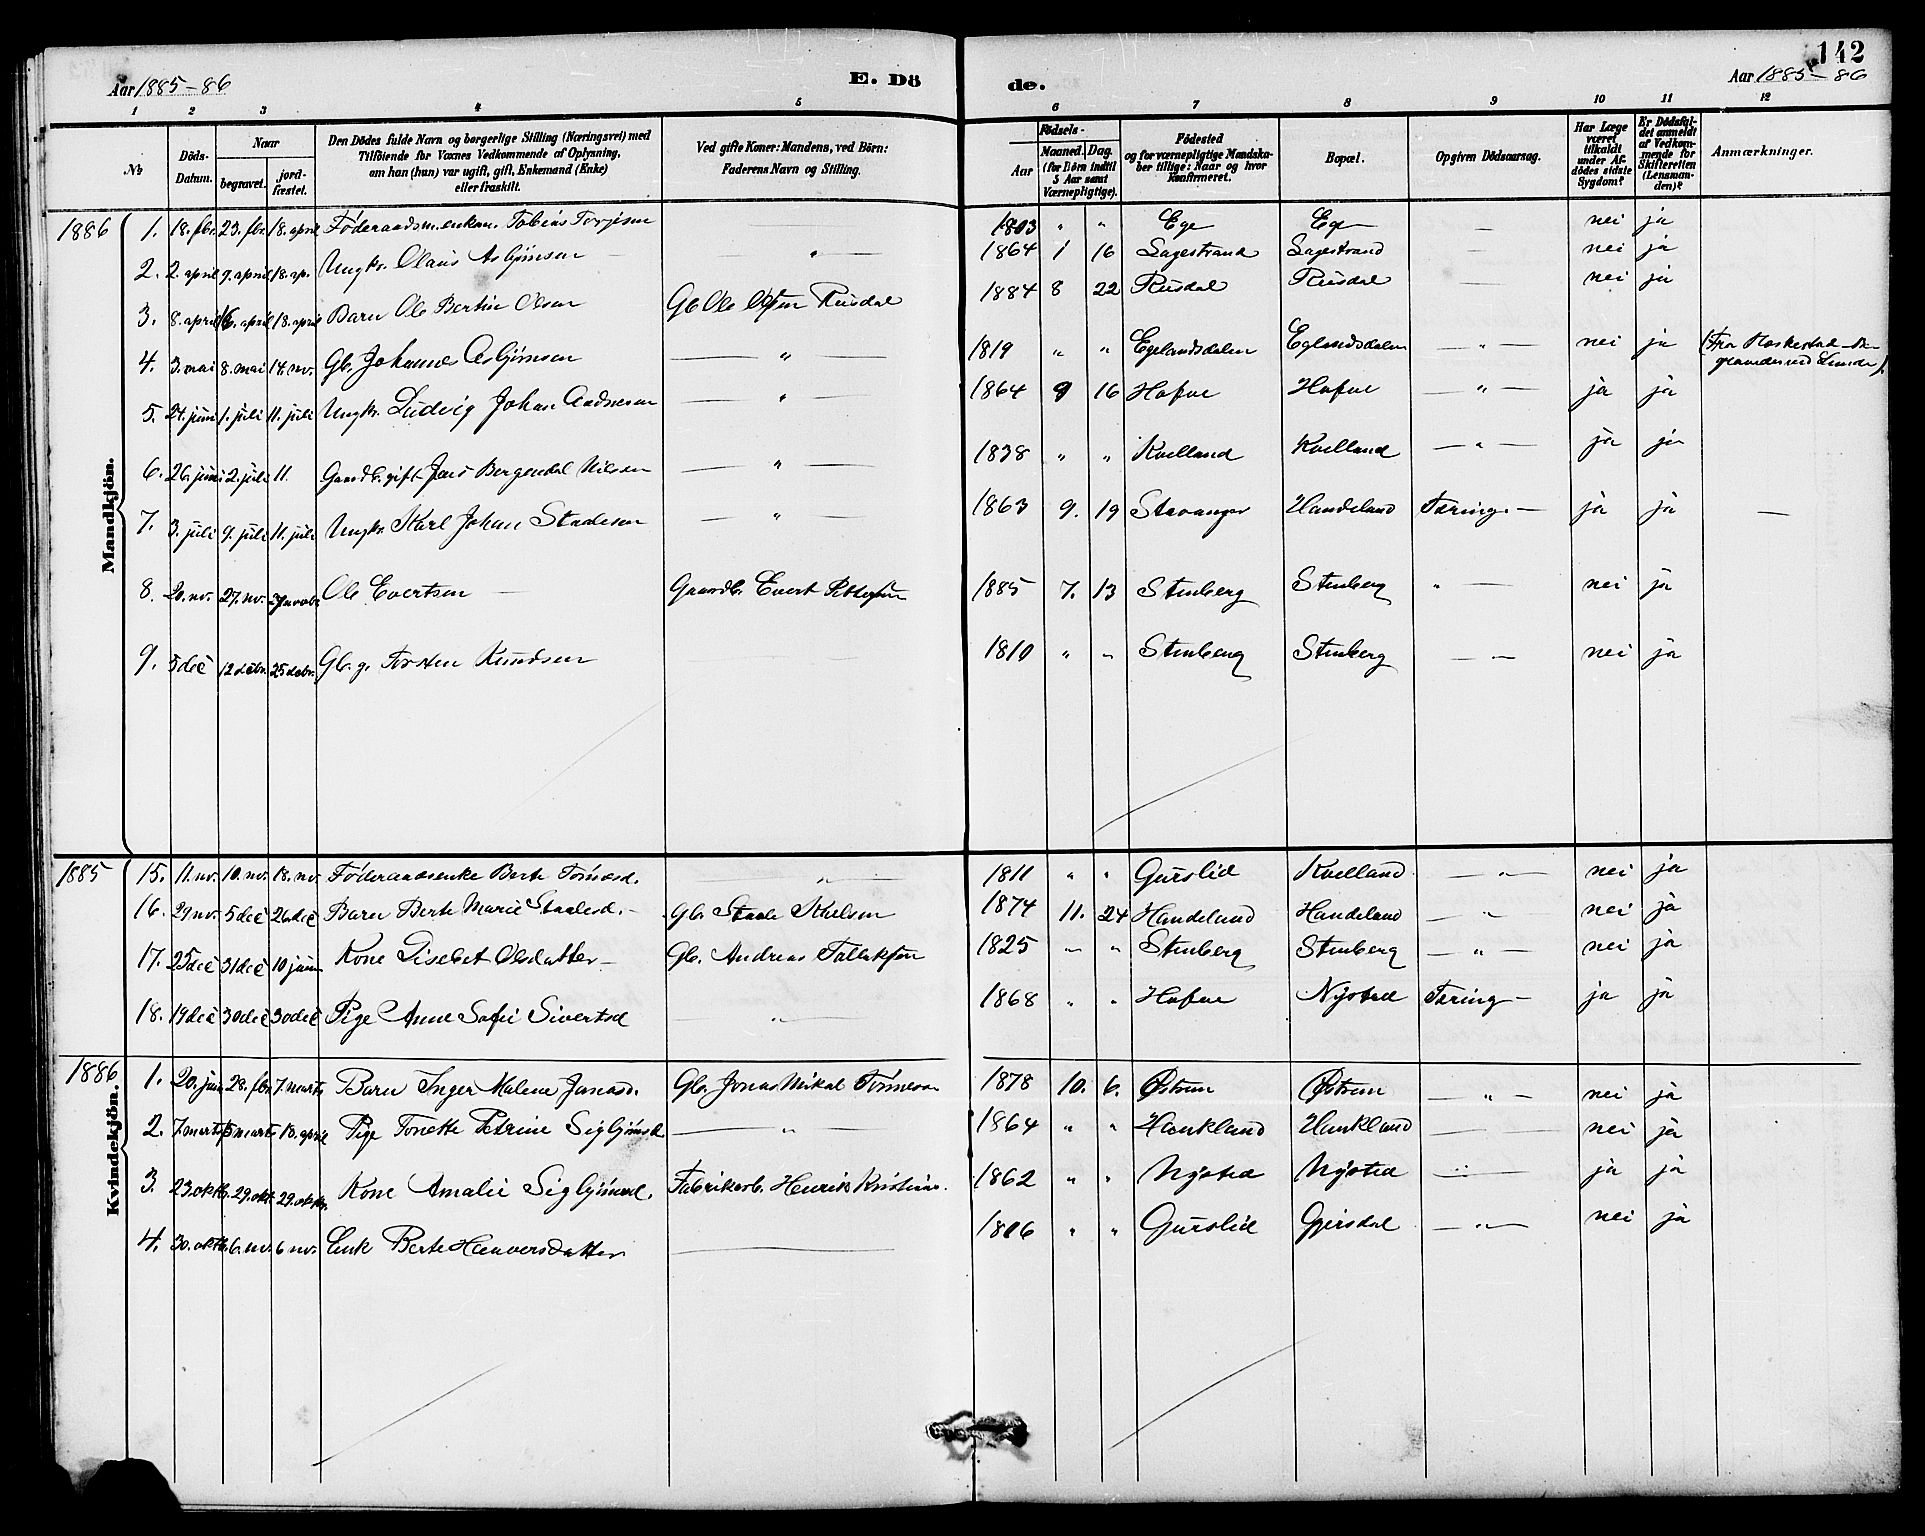 142
Aar 1885-86
E. Dö
de.
Aar 1885-86
1 2 3 4 5 6 7 8 9 10 11 12
No
Döds-Datum.
Naar
begravet.
jord-fæstet.
Den Dödes fulde Navn og borgerlige Stilling (Næringsvei) med
Tilföiende for Voxnes Vedkommende af Oplysning,
om han (hun) var ugift, gift, Enkemand (Enke)
eller fraskilt.
Ved gifte Koner: Mandens, ved Börn:
Faderens Navn og Stilling.
Födsels-
Aar
Maaned. Dag.
(for Börn indtil
5 Aar samt
Værnepligtige).
Födested
og for værnepligtige Mandska-
ber tillige: Naar og hvor
konfirmeret.
Bopæl.
Opgiven Dödsaarsag.
Har Læge
været
tilkaldt
under Af-
dödes sidste
Sygdom?
Er Dödsfal-
det anmeldt
af Vedkom-
mende for
Skifteretten
(Lensman-
den)?
Anmærkninger.
Mandkjön.
1886 1. 18. fbr. 23. fbr. 18. april Föderaadsm. enkem. Tobias Torjesen 1803 " " Ege Ege — nei ja
2. 2. april 9. april 18. ap. Ungkr. Olaus Asbjörnsen — " 1864 1 16 Sagestrand Sagestrand — nei ja
3. 8. april 16. april 18. april Barn Ole Bertin Olsen Gb Ole Olsen Rusdal 1884 8 22 Rusdal Rusdal — nei ja
4. 3. mai 8. mai 14. nv. Gb. Johannes Asbjörnsen — " — 1819 " " Egelandsdalen Eglandsdalen — " — nei ja (Fra
5. 24. juni 1. juli 11. juli Ungkr. Ludvig Johan Aadnesen — " — 1864 9 16 Hafue Hafue — " — ja ja
6. 26. juni 2. juli 11. Gaardb. gift Jens Bergendal Nilsen — " — 1838 " " Kvelland Kvelland — " — ja ja
7. 3. juli 9. juli 11. juli Ungkr. Karl Johan Stadesen — " — 1863 9. 19 Stavanger Handeland Tæring. — ja ja —
8. 20. nv. 27. nv. 27 novbr Ole Evertsen — Gaardb. Evert Pettersen 1885 7. 13 Stenberg Stenberg " — nei ja
9. 5 dec 12 decbr. 25 decbr. Gb. g. Torsten Knudsen 1810 " " Stenberg Stenberg — " — nei ja
Kvindekjön.
1885 15. 11. nv. 10. nv. 18. nv. Föderaadsenke Berte Tönnesd. — " — 1811 " " Gursliö Kvelland — " — nei ja
16. 29 nv. 5 dec 26 dec Barn Berte Marie Staalesd. — Gb. Staale 1874 11. 24 Handeland Handeland — " — nei ja
17. 25 dec 31 dec 10 januar Kone Lisebet Olsdatter — Gb. Andreas Tallaksen 1825 " " Stenberg Stenberg — " — nei ja
18. 19 dec 30 dec 30 dec Pige Anne Sofie Sivertsd — " — 1868 " " Hafue Nysted Tæring — ja ja
1886 1. 20. jan 28. fbr. 7. marts Barn Inger Malene Jonasd. Gb. Jonas Mikal Tönnesen 1878 10. 6. Østrem Østrem — " — nei ja
2. 7. marts marts 18. april Pige Tonette Petrine Sigbjörnsd — " — 1864 " " Haukland Haukland — nei ja
3. 23. oktb. 29. okt. 29. oktb. Kone Amalie Sigbjörnsd. Fabrikarb. Henrik Kristians. 1862 " " Nysted Nysted — " — ja ja
4. 30. oktb. 6. nv. 6 nv. Enk Berte Haaversdatter — 1806 " " Gursliö Gjersdal — " — nei ja